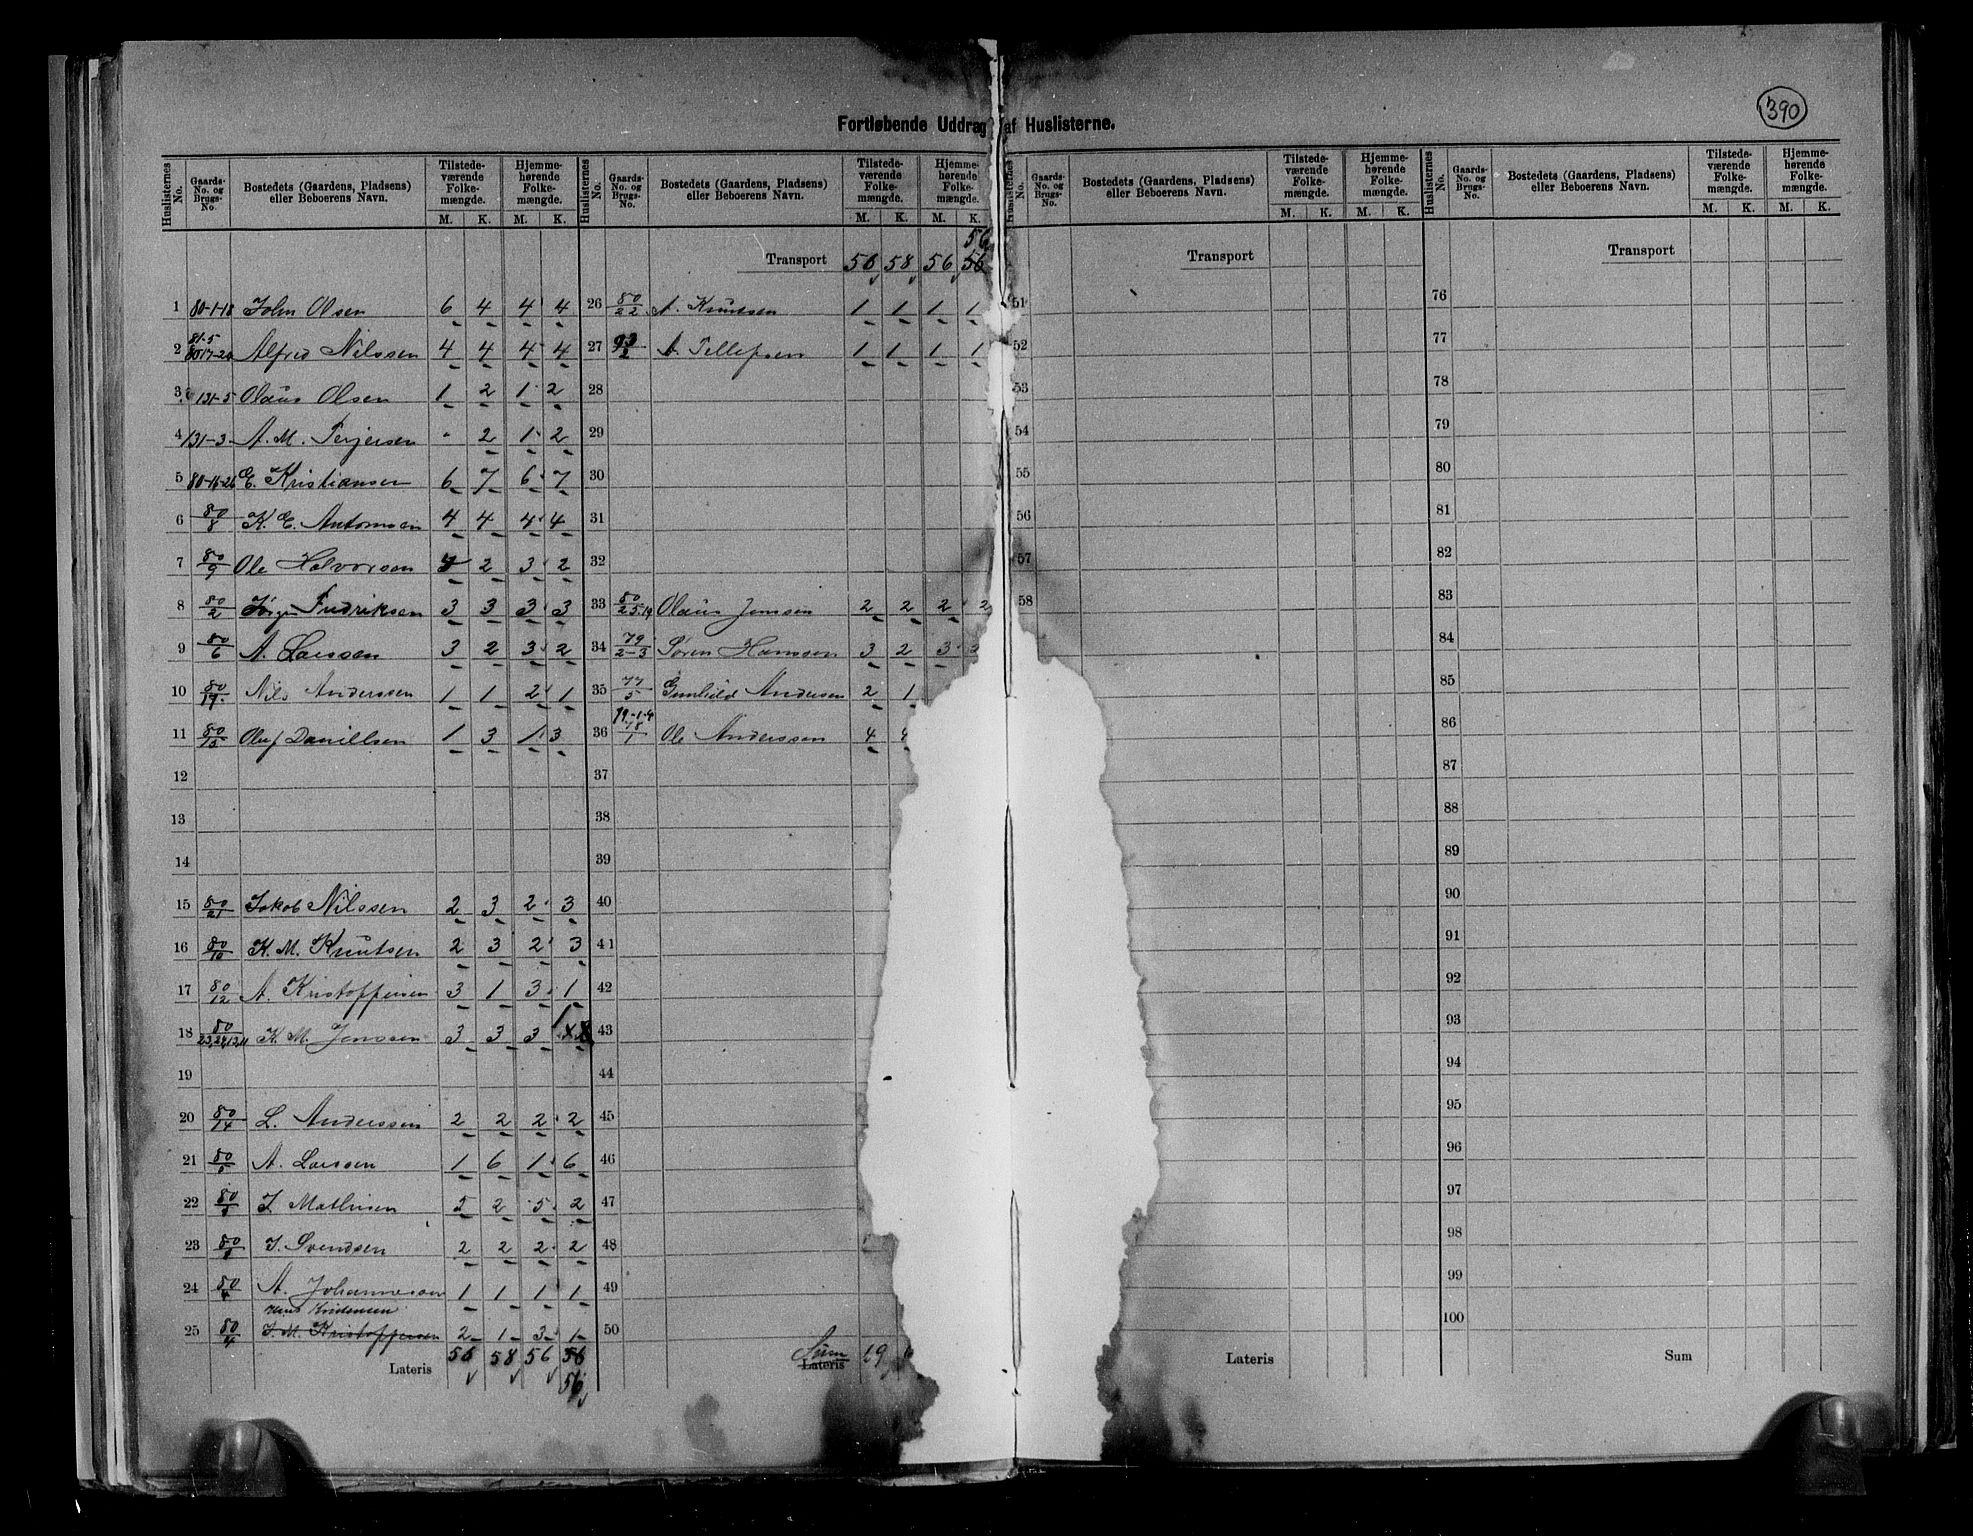 390
Fortløbende Uddrag af Huslisterne.
Huslisternes No. | Gaards-No. og Brugs-No. | Bostedets (Gaardens, Pladsens) eller Beboerens Navn. | Tilstedeværende Folkemængde. M. K. | Hjemmehørende Folkemængde. M. K.
1 80-1-18 John Olsen 6 4 4 4
2 81-5 80 17-20 Alfred Nilssen 4 4 4 4
3 131-5 Olaus Olsen 1 2 1 2
4 131-3 A. M. Terjersen - 2 1 2
5 80-16-26 E. Kristiansen 6 7 6 7
6 80/8 K. E. Antonsen 4 4 4 4
7 80/9 Ole Halvorsen 4 2 3 2
8 80/2 Fredriksen 3 3 3 3
9 80/6 A. Larssen 3 2 3 2
10 80/19 Nils Anderssen 1 1 2 1
11 80/15 Oluf Daniellsen 1 3 1 3
12
13
14
15 80/21 Jakob Nilssen 2 3 2 3
16 80/10 K. M. Knutsen 2 3 2 3
17 80/12 A. Kristoffersen 3 1 3 1
18 80 K. M. Jenssen 3 3 3
19
20 80/14 L. Anderssen 2 2 2 2
21 80/5 A. Larssen 1 6 1 6
22 80 J. Mathisen 5 2 5 2
23 80 J. Svendsen 2 2 2 2
24 80/4 A. Johannesen 1 1 1 1
25 80/4 J. M. Kristoffersen 2 1 3 1
Lateris 56 58 56 56
56
Huslisternes No. | Gaards-No. og Brugs-No. | Bostedets (Gaardens, Pladsens) eller Beboerens Navn. | Tilstedeværende Folkemængde. M. K. | Hjemmehørende Folkemængde. M. K.
56
Transport 56 58 56 56
26 80/22 A. Knutsen 1 1 1 1
27 93/2 A. Tellefsen 1 1 1 1
28
29
30
31
32
33 80/25.19 Olaus Jensen 2 2 2 2
34 79/2-3 Søren Hanssen 3 2 3
35 77/5 Gunhild Andersen 2 1
36 79-1-4 78/1 Ole Anderssen 4 4
37
38
39
40
41
42
43
44
45
46
47
48
49
50
Sum
Lateris 19
Huslisternes No. | Gaards-No. og Brugs-No. | Bostedets (Gaardens, Pladsens) eller Beboerens Navn. | Tilstedeværende Folkemængde. M. K. | Hjemmehørende Folkemængde. M. K.
Transport
51
52
53
54
55
56
57
58
Lateris
Huslisternes No. | Gaards-No. og Brugs-No. | Bostedets (Gaardens, Pladsens) eller Beboerens Navn. | Tilstedeværende Folkemængde. M. K. | Hjemmehørende Folkemængde. M. K.
Transport
76
77
78
79
80
81
82
83
84
85
86
87
88
89
90
91
92
93
94
95
96
97
98
99
100
Sum